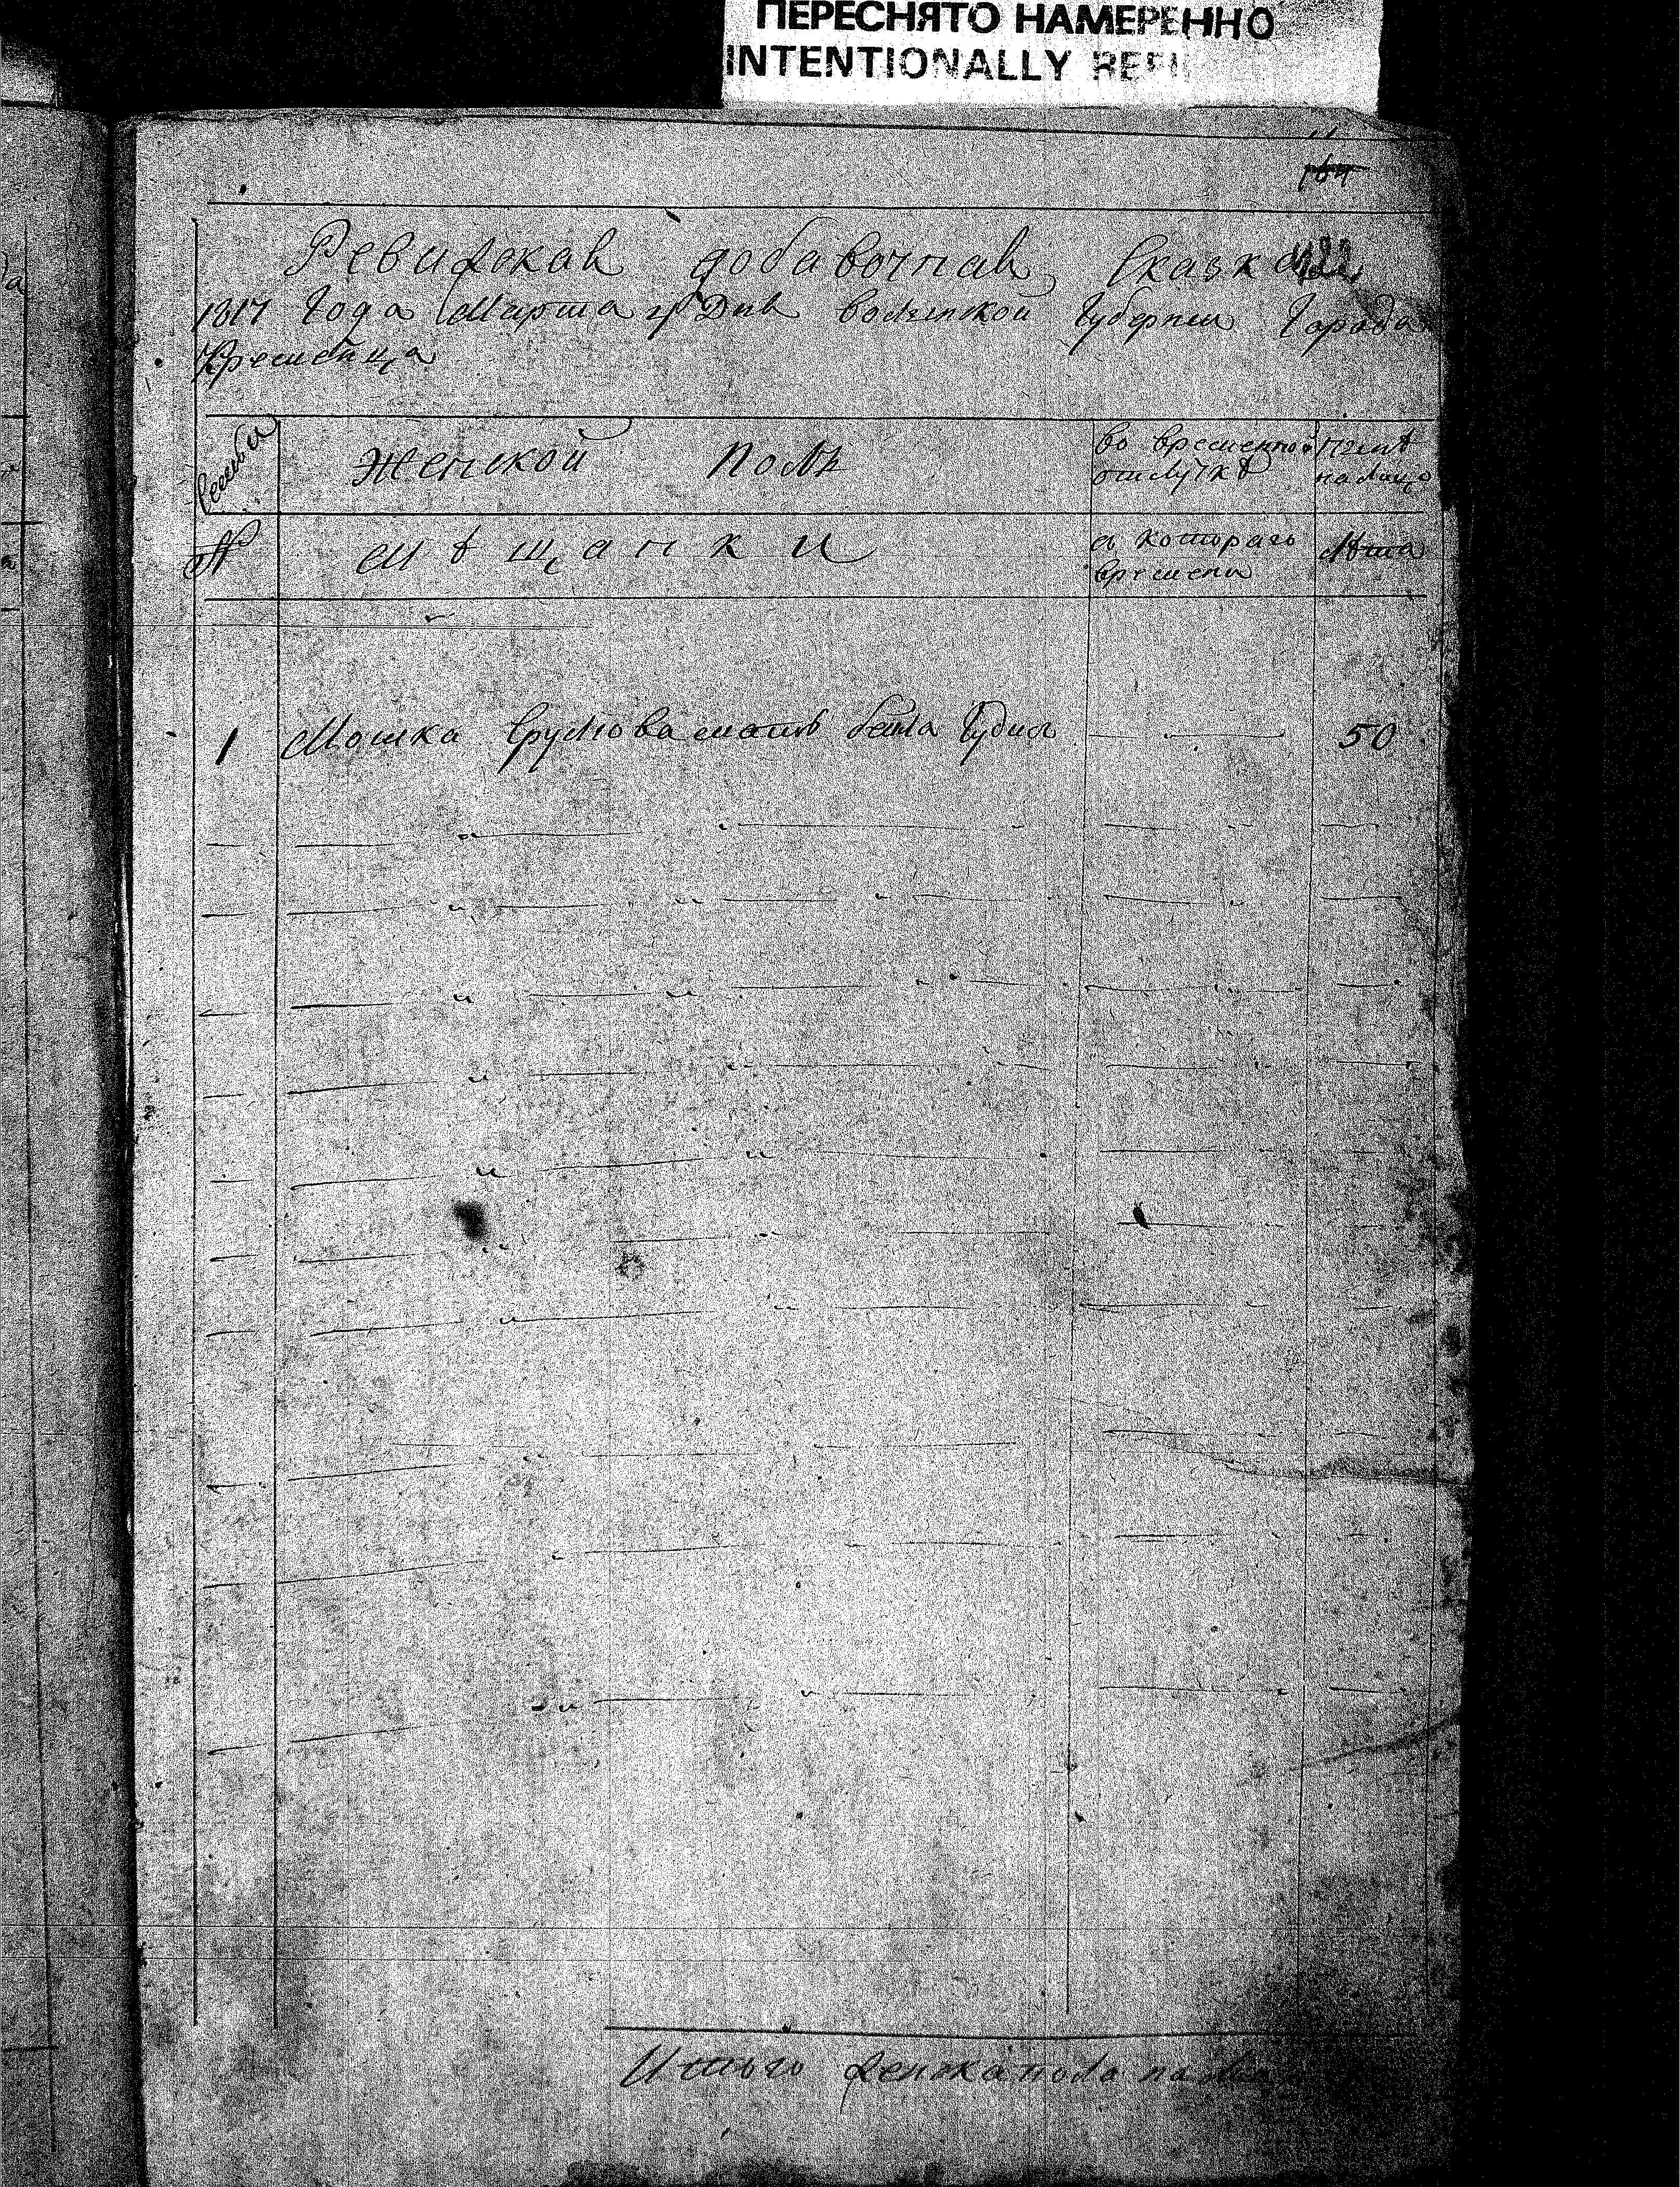 ПЕРЕСНЯТО НАМЕРЕННО
INTENTIONALLY REFI
Ревизская добавочная Сказка
1817 Года Марта Дня волынской Губернии Города
Кременца
Семьи
Женской Полъ
во временной отлучкѣ
нынѣ на лицо
№
мѣщанки
съ котораго времени
Лѣта
1 Мошка Сруліова мать бейла Юдис 50
Итого женска пола на